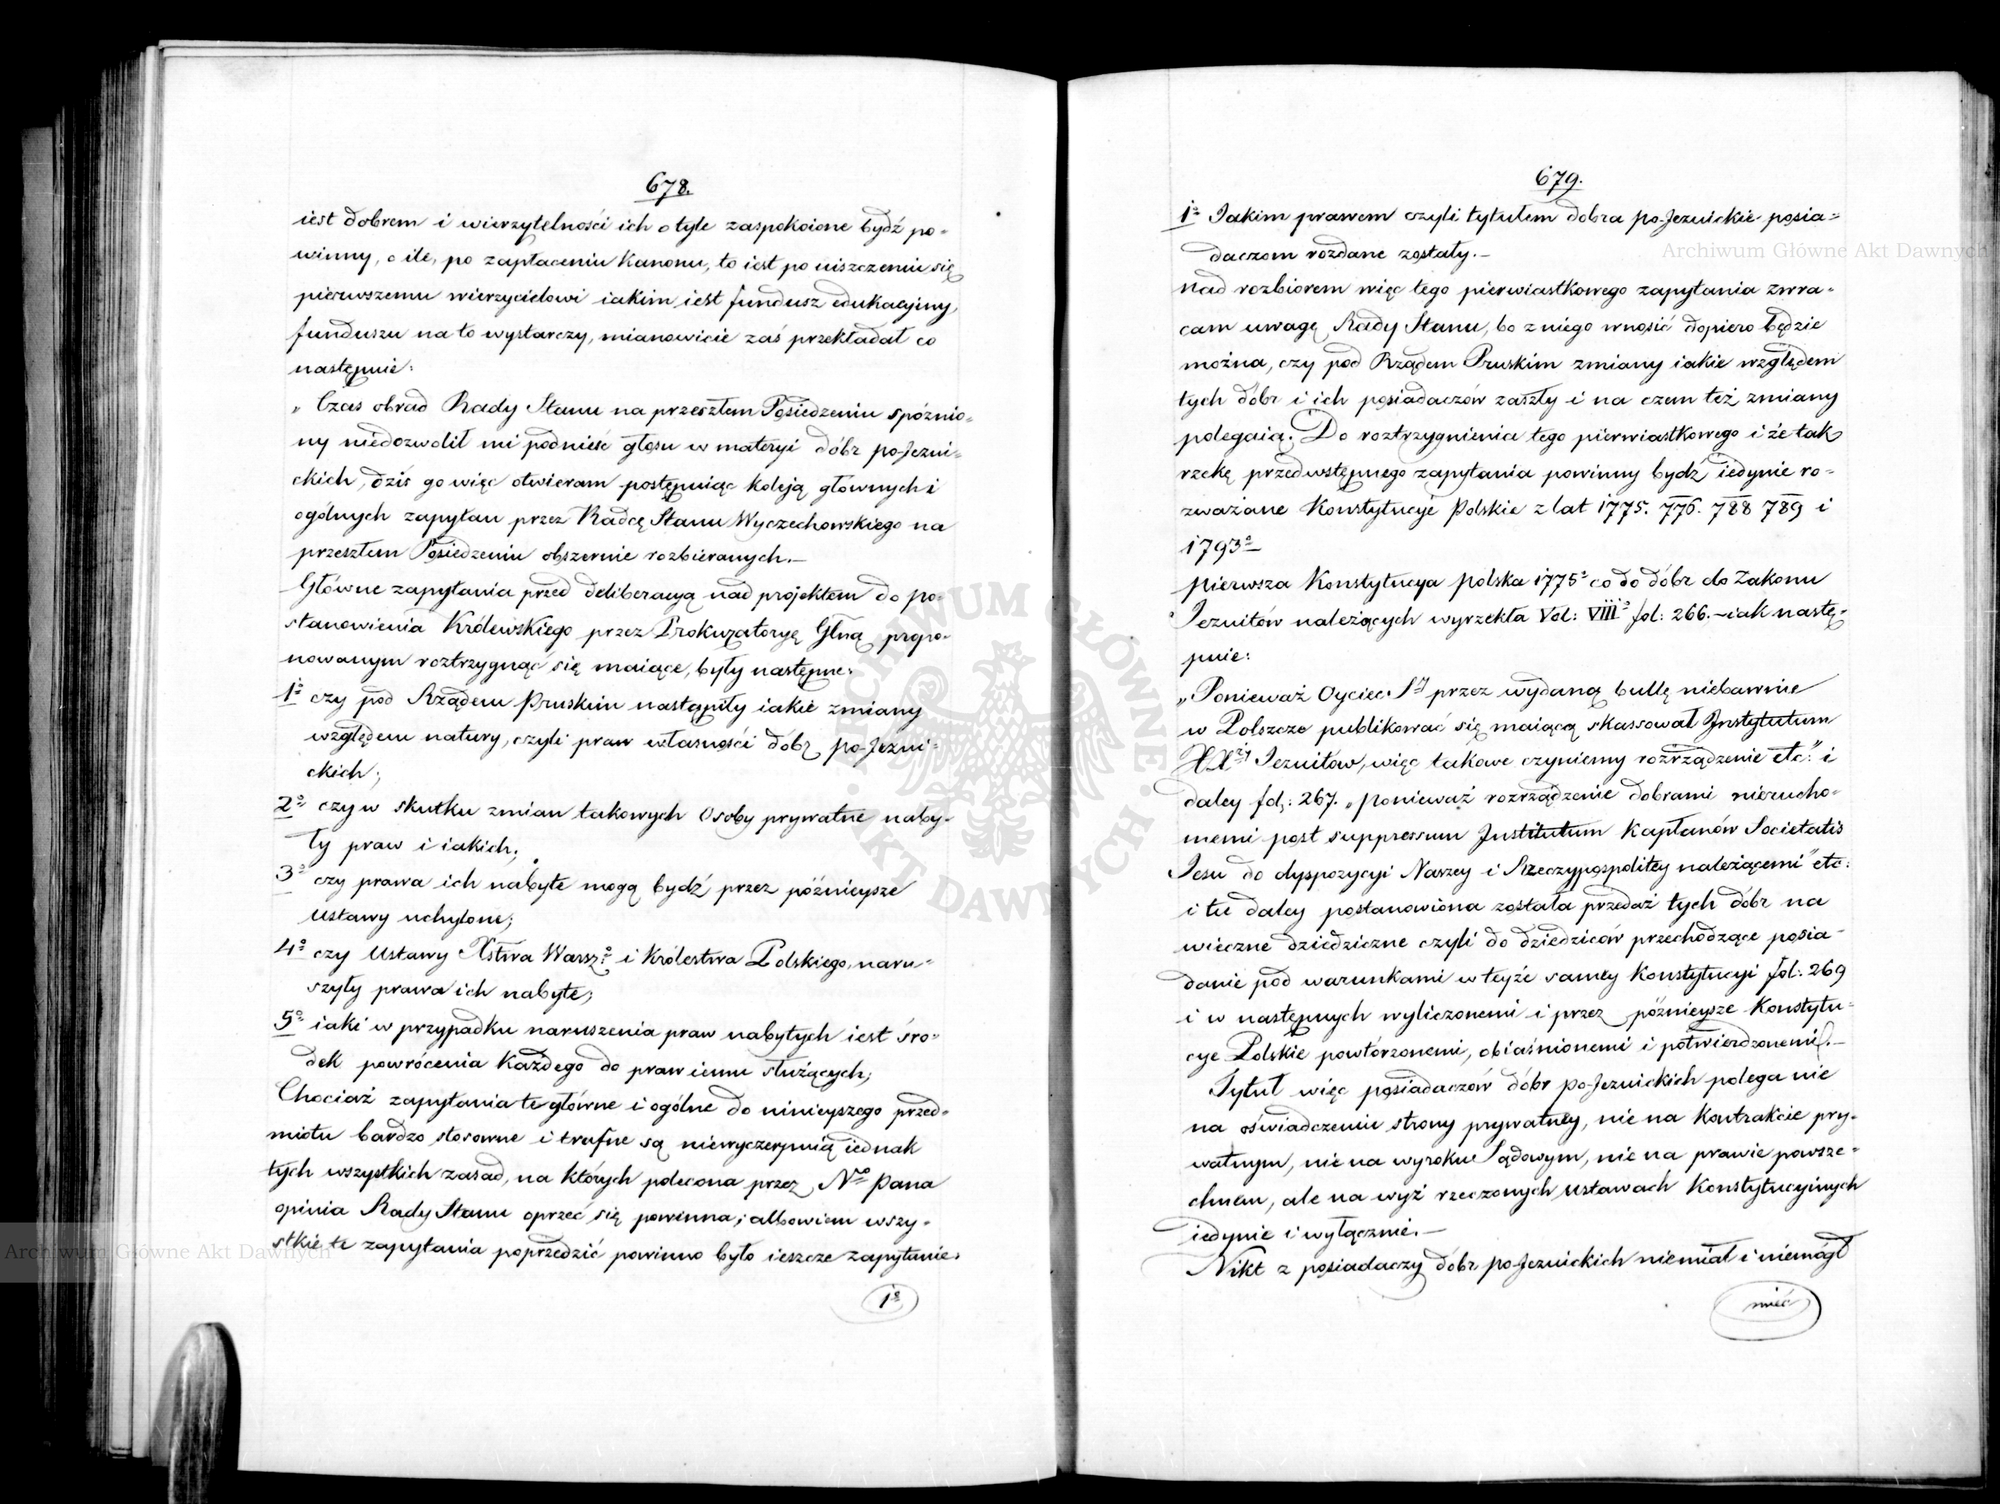 678.
iest dobrem i wierzytelności ich o tyle zaspokoione bydź po-
winny, o ile, po zapłaceniu Kanonu, to iest po uiszczeniu się
pierwszemu wierzycielowi iakim iest fundusz edukacyiny,
funduszu na to wystarczy, mianowicie zaś przekładał co
następuie:
„Czas obrad Rady Stanu na przeszłem Posiedzeniu spóźnio-
ny niedozwolił mi podnieść głosu w materyi dóbr po-Jezui-
ckich, dziś go więc otwieram postępuiąc koleją głównych i
ogólnych zapytań przez Radcę Stanu Wyczechowskiego na
przeszłem Posiedzeniu obszernie rozbieranych.—
Główne zapytania przed deliberacyą nad projektem do po-
stanowienia Królewskiego przez Prokuratoryę Glną propo-
nowanym roztrzygnąć się maiące, były następne:
1° czy pod Rządem Pruskim nastąpiły iakie zmiany
względem natury, czyli praw własności dóbr po-Jezui-
ckich;
2° czy w skutku zmian takowych Osoby prywatne naby-
ły praw i iakich;
3° czy prawa ich nabyte mogą bydź przez późnieysze
Ustawy uchylone;
4° czy Ustawy Xstwa Warszgo i Królestwa Polskiego, naru-
szyły prawa ich nabyte;
5° iaki w przypadku naruszenia praw nabytych iest śro-
dek powrócenia Każdego do praw iemu służących;
Chociaż zapytania te główne i ogólne do ninieyszego przed-
miotu bardzo stosowne i trafne są niewyczerpuią iednak
tych wszystkich zasad, na których polecona przez Ngo Pana
opinia Rady Stanu oprzeć się powinna; albowiem wszy-
stkie te zapytania poprzedzić powinno było ieszcze zapytanie:
1°
679.
1° Jakim prawem czyli tytułem dobra po-Jezuickie posia-
daczom rozdane zostały.—
Nad rozbiorem więc tego pierwiastkowego zapytania zwra-
cam uwagę Rady Stanu, bo z niego wnosić dopiero będzie
można, czy pod Rządem Pruskim zmiany iakie względem
tych dóbr i ich posiadaczów zaszły i na czem też zmiany
polegaią. Do roztrzygnienia tego pierwiastkowego i że tak
rzekę przedwstępnego zapytania powinny bydź iedynie ro-
zważane Konstytucye Polskie z lat 1775. 776. 788 789 i
1793°—
Pierwsza Konstytucya Polska 1775° co do dóbr do Zakonu
Jezuitów należących wyrzekła Vol: VIII° fol: 266.—iak nastę-
puie:
„Ponieważ Oyciec Sty przez wydaną bullę niebawnie
w Polszcze publikować się maiącą skassował Instytutum
XXży Jezuitów, więc takowe czyniemy rozrządzenie etc:" i
daley fol: 267. „Ponieważ rozrządzenie dobrami nierucho-
memi post suppressum Institutum Kapłanów Societatis
Jesu do dyspozycyi Naszey i Rzeczypospolitey należącemi" etc:
i tu daley postanowiona została przedaż tych dóbr na
wieczne dziedziczne czyli do dziedziców przechodzące posia-
danie pod warunkami w teyże samey Konstytucyi fol: 269
i w następnych wyliczonemi i przez późnieysze Konstytu-
cye Polskie powtórzonemi, obiaśnionemi i potwierdzonemi.—
Tytuł więc posiadaczów dóbr po-Jezuickich polega nie
na oświadczeniu strony prywatney, nie na Kontrakcie pry-
watnym, nie na wyroku Sądowym, nie na prawie powsze-
chnem, ale na wyż rzeczonych ustawach Konstytucyinych
iedynie i wyłącznie.—
Nikt z posiadaczy dóbr po-Jezuickich niemiał i niemógł
mieć
Archiwum Główne Akt Dawnych
Archiwum Główne Akt Dawnych
ARCHIWUM GŁÓWNE • AKT DAWNYCH •